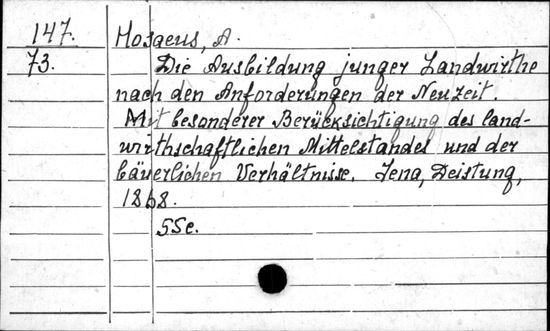 147.
73.
Hosaeus, A.
Die Ausbildung junger Landwirthe
nach den Anforderungen der Neuzeit.
Mit besonderer Berücksichtigung des land-
wirthschaftlichen Mittelstandes und der
bäuerlichen Verhältnisse. Jena, Deistung,
1868.
5Se.